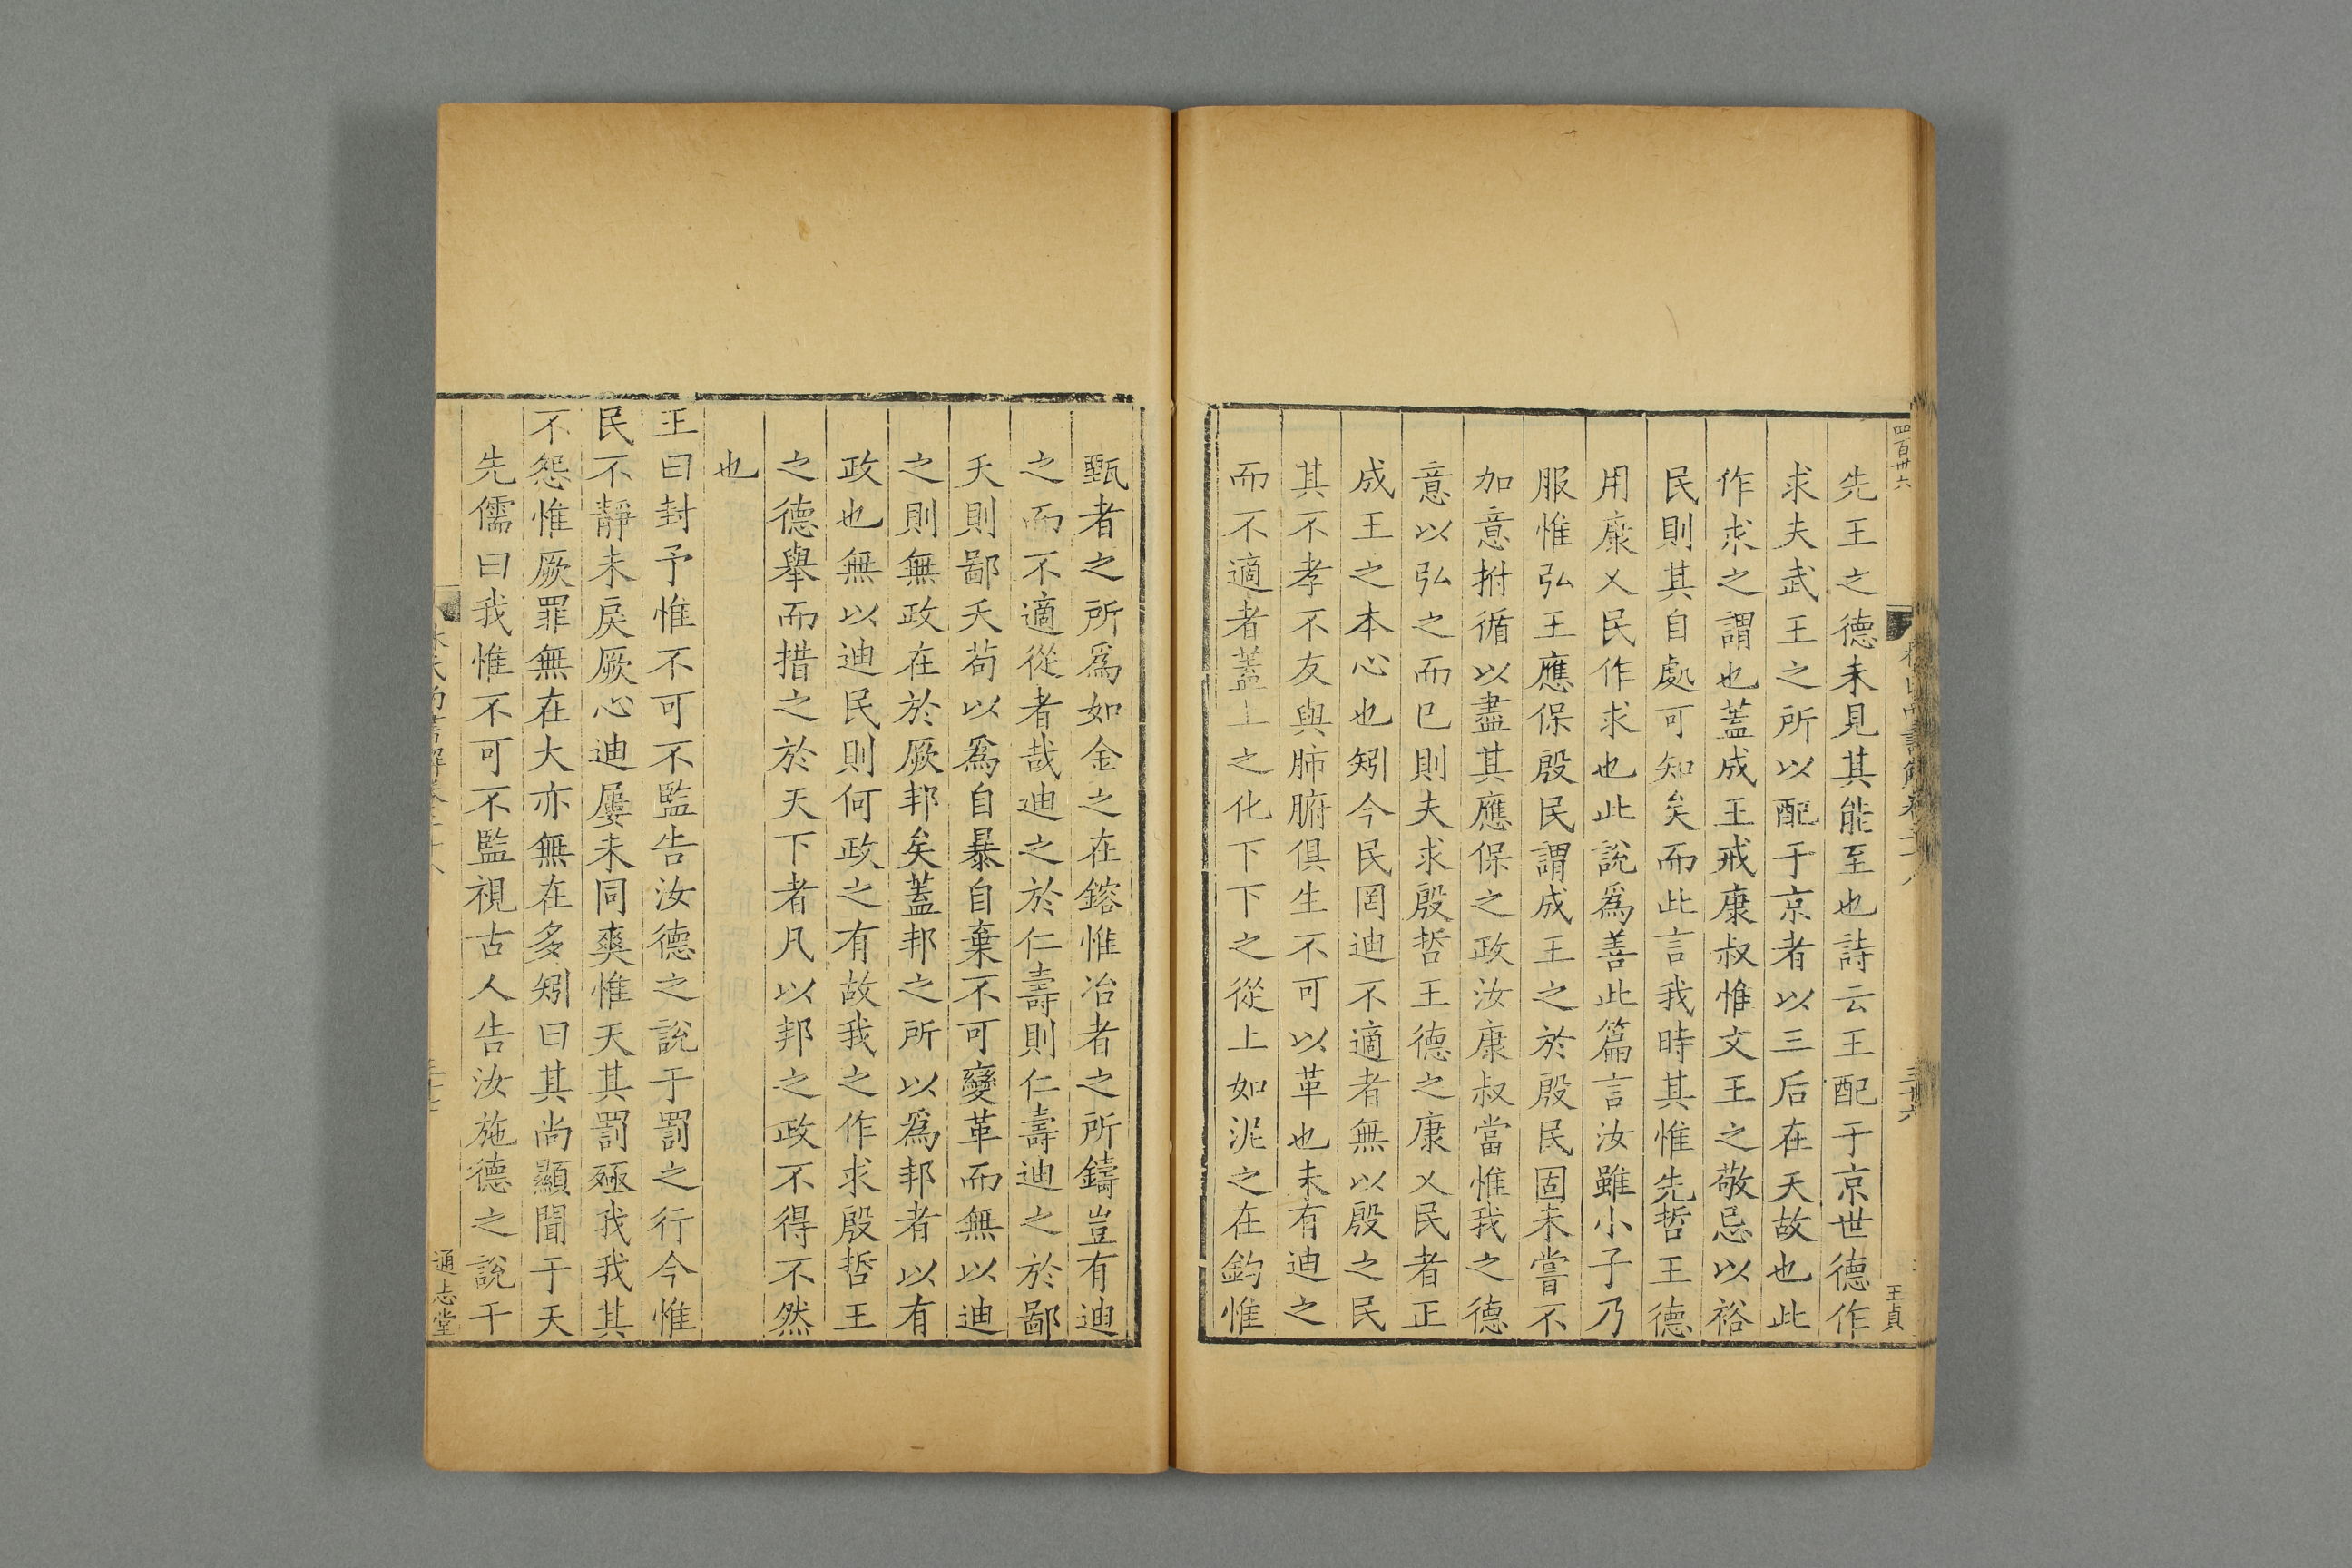 四百卅六
王貞
先王之德未見其能至也詩云王配于京世德作
求夫武王之所以配于京者以三后在天故也此
作求之謂也蓋成王戒康叔惟文王之敬忌以裕
民則其自處可知矣而此言我時其惟先哲王德
用康乂民作求也此說爲善此篇言汝雖小子乃
服惟弘王應保殷民謂成王之於殷民固未嘗不
加意拊循以盡其應保之政汝康叔當惟我之德
意以弘之而已則夫求殷哲王德之康乂民者正
成王之本心也矧今民罔迪不適者無以殷之民
其不孝不友與肺腑俱生不可以革也未有迪之
而不適者蓋上之化下下之從上如泥之在鈞惟
甄者之所爲如金之在鎔惟冶者之所鑄豈有迪
之而不適從者哉迪之於仁壽則仁壽迪之於鄙
夭則鄙夭苟以爲自暴自棄不可變革而無以迪
之則無政在於厥邦矣蓋邦之所以爲邦者以有
政也無以迪民則何政之有故我之作求殷哲王
之德舉而措之於天下者凡以邦之政不得不然
也
王曰封予惟不可不監告汝德之說于罰之行今惟
民不靜未戾厥心迪屢未同爽惟天其罰殛我我其
不怨惟厥罪無在大亦無在多矧曰其尚顯聞于天
先儒曰我惟不可不監視古人告汝施德之說于
通志堂